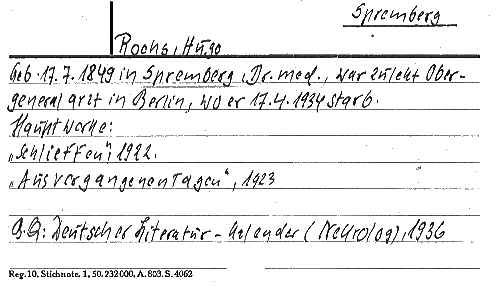 Spremberg
Rochs, Hugo
Geb. 17.7.1849 in Spremberg, Dr. med., war zuletzt Ober-
generalarzt in Berlin, wo er 17.4.1934 starb.
Hauptwerke:
„Schlieffen“, 1922.
„Aus vergangenen Tagen“, 1923
B.Q.: Deutscher Literatur-Kalender (Nekrolog), 1936
Reg. 10, Stichnote. 1, 50. 232000, A. 803. S. 4062